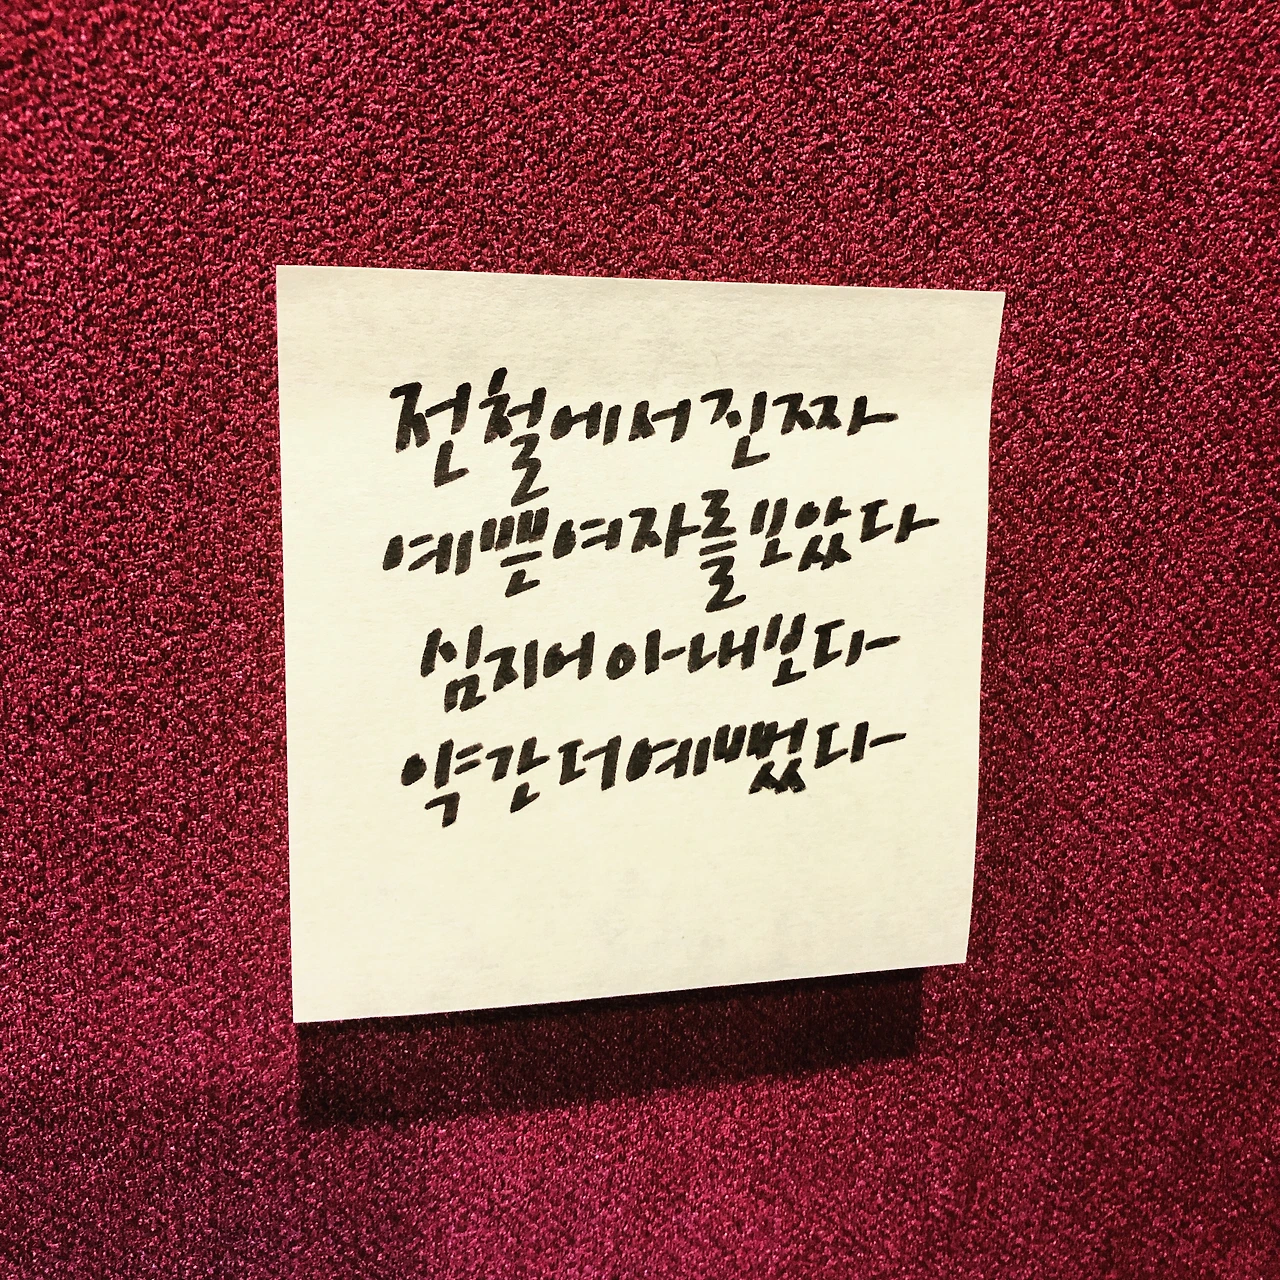 전철에서 진짜
예쁜 여자를 보았다
심지어 아내보다
약간 더 예뻤다